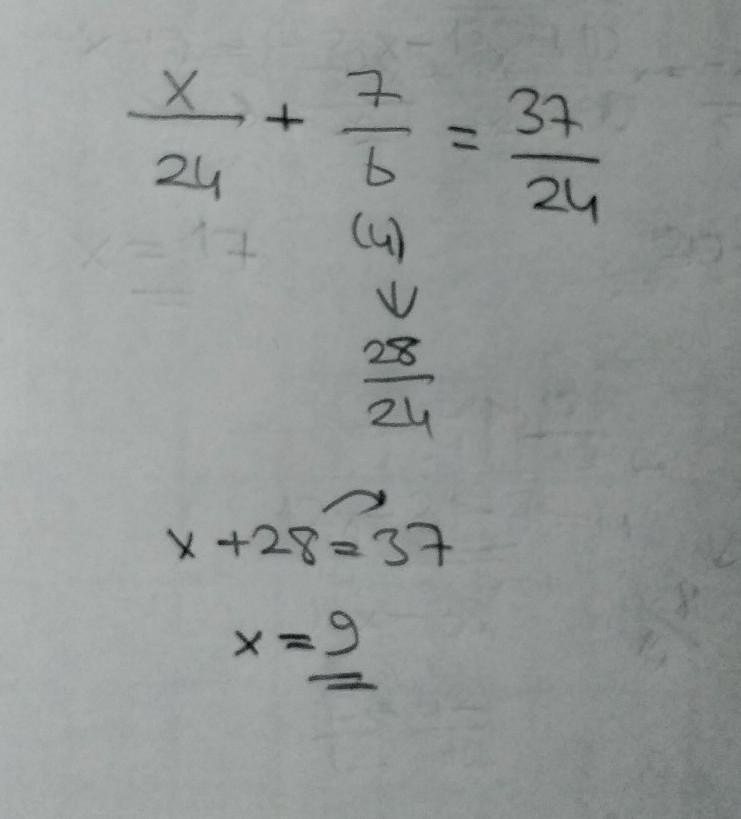 x/24 + 7/6 = 37/24
(4)
↓
28/24
x + 28 = 37
x = 9